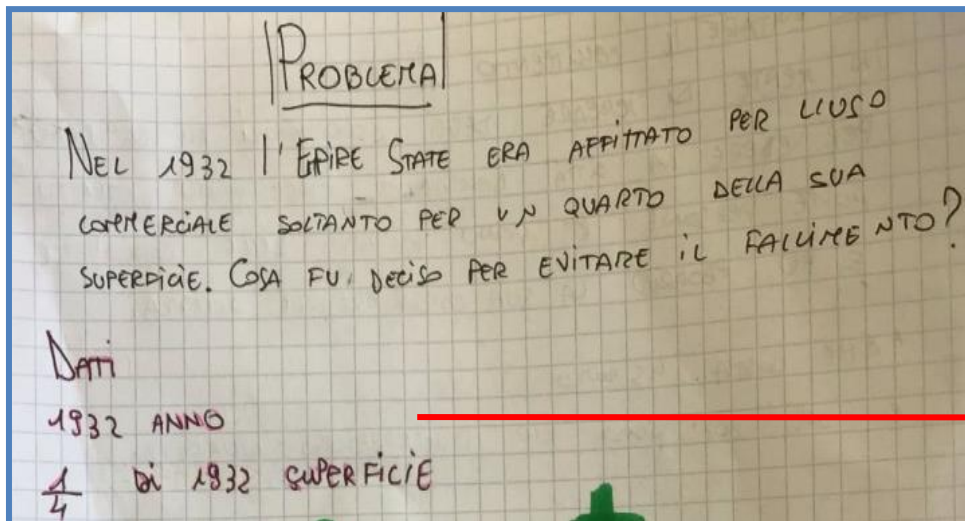 PROBLEMA
NEL 1932 l'EPIRE STATE ERA AFFITTATO PER L'USO
COMMERCIALE SOLTANTO PER UN QUARTO DELLA SUA
SUPERFICIE. COSA FU DECISO PER EVITARE iL FALLIMENTO?
DATI
1932 ANNO
1/4 Di 1932 SUPERFICIE